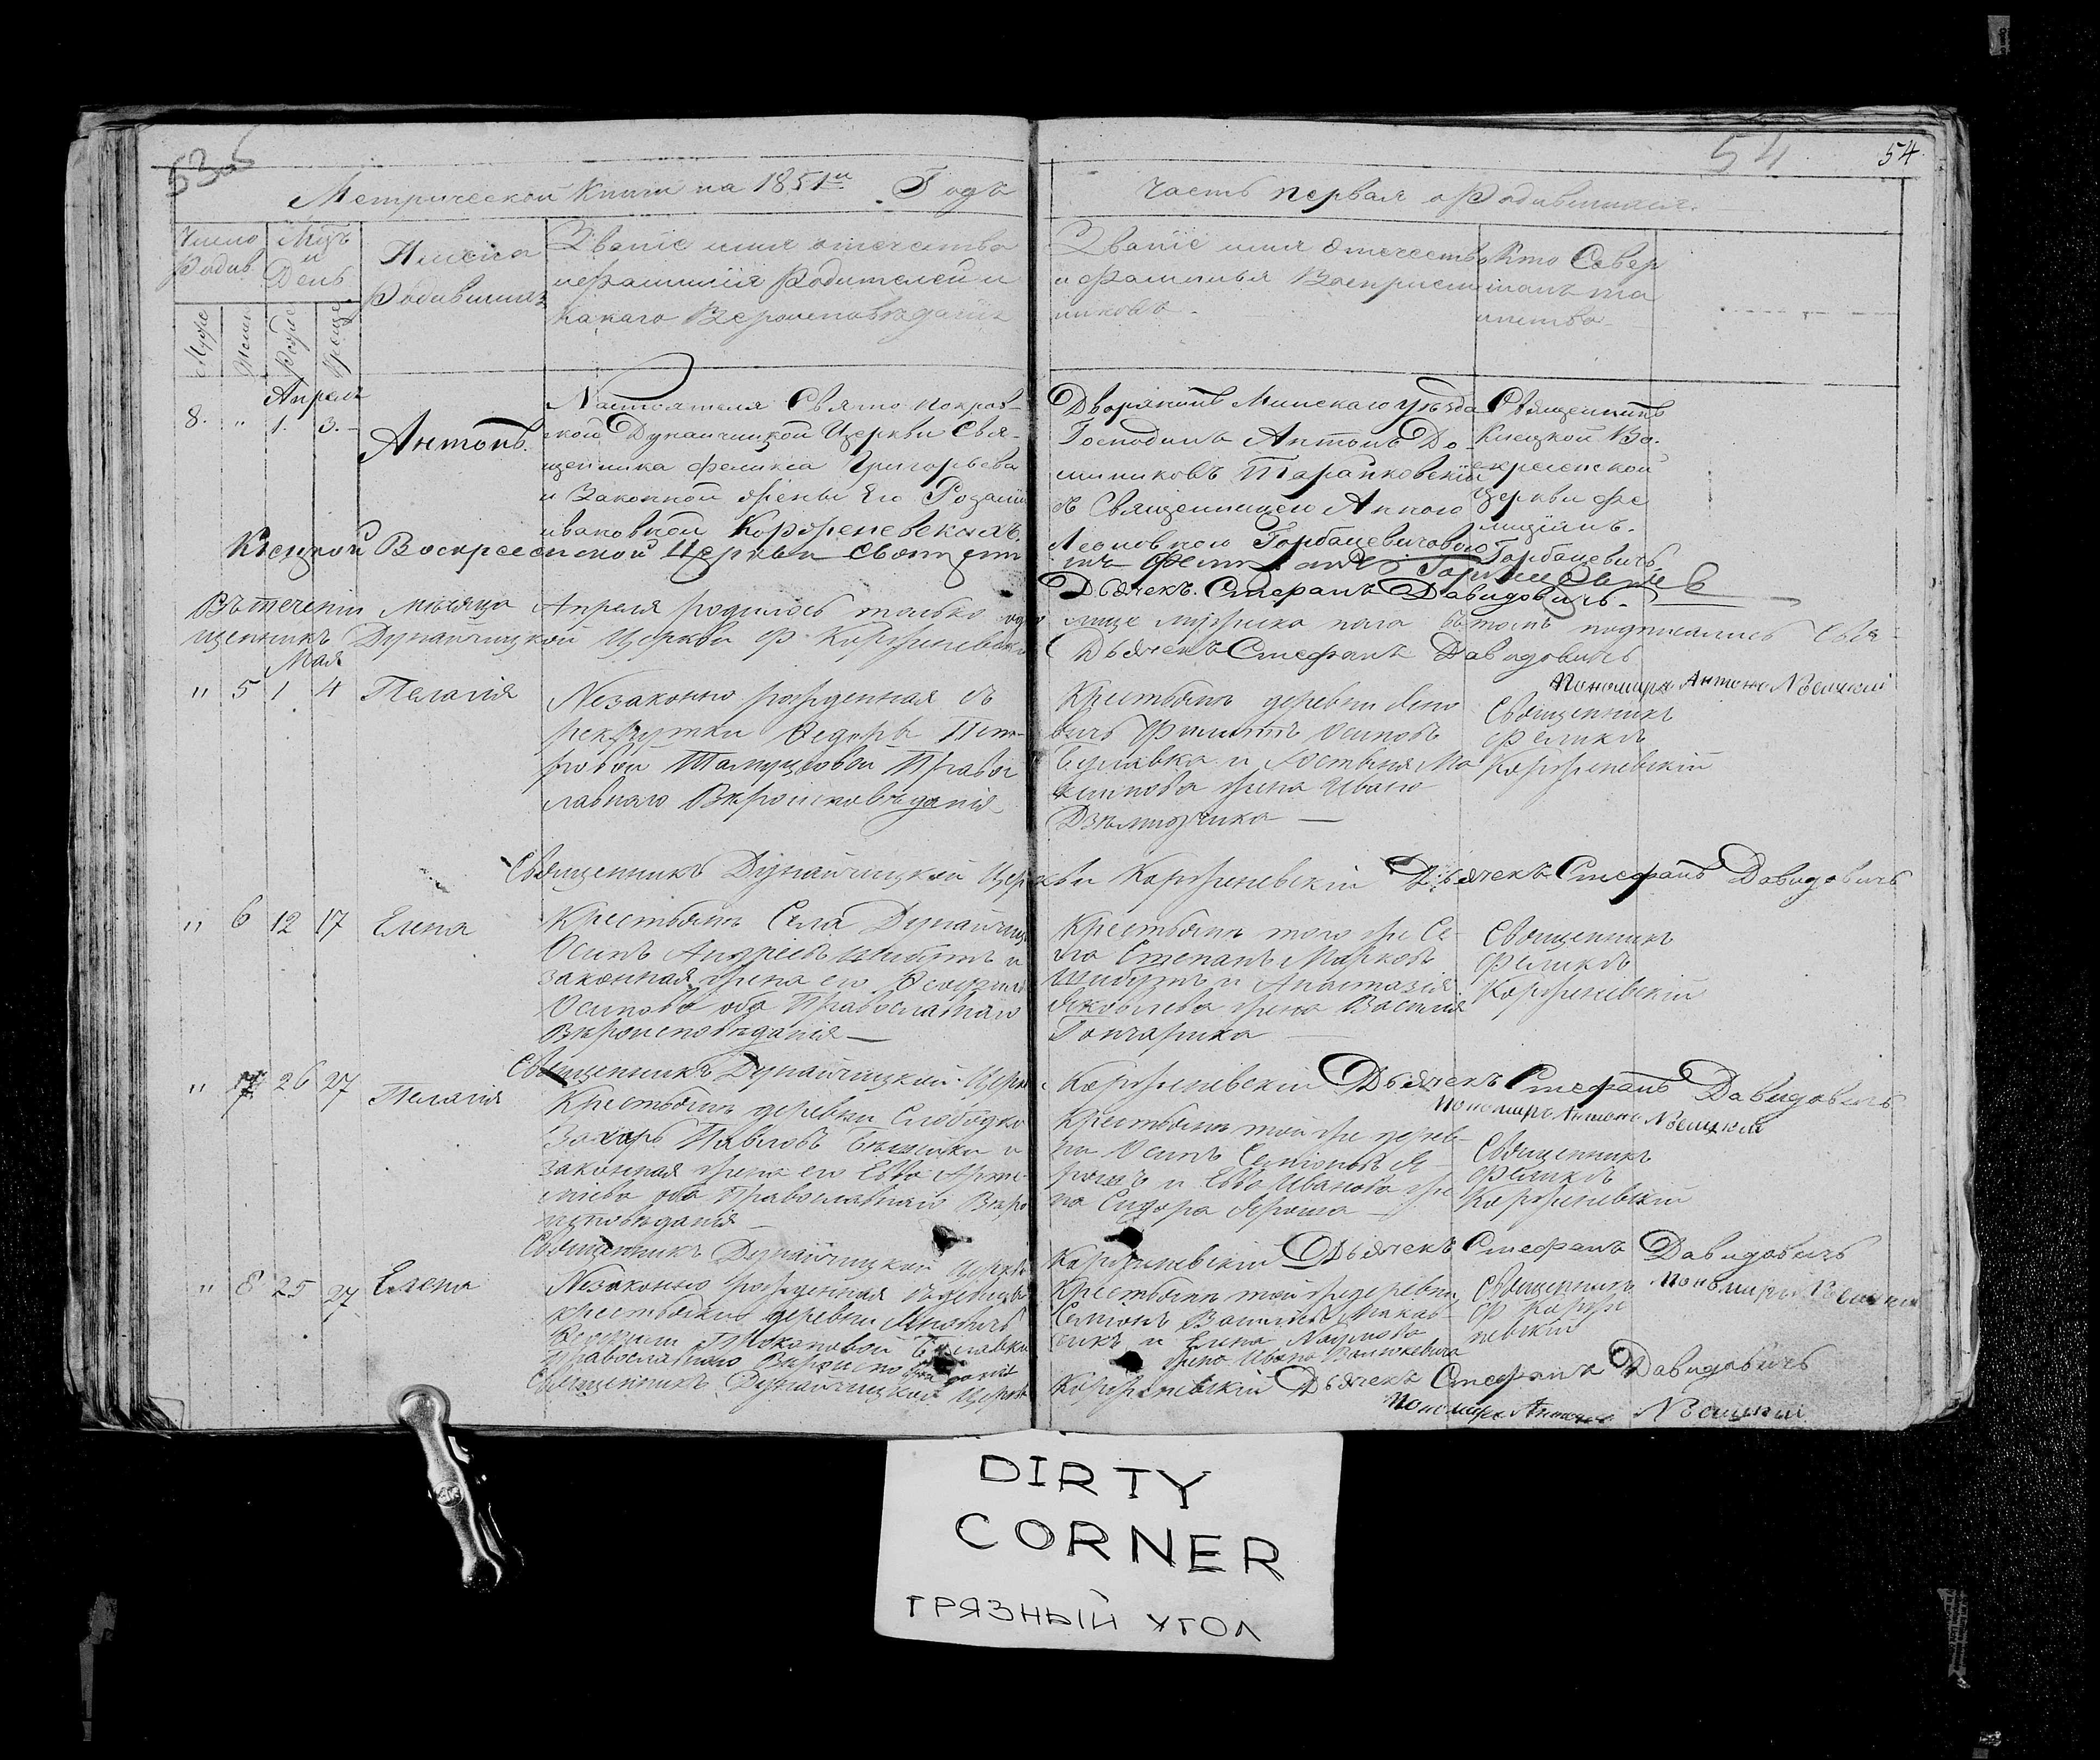 53об
54
54.
Метрической Книги на 1851й Годъ
часть первая о Родившихся.
Число Родив.
Мѣц. и День
Имена Родившихъ
Званіе имя отечество
и фамилія Родителей и
какаго Вероисповѣданія
Званіе имя Отечество
и Фамилья Восприем
никовъ.
Кто Совер
шалъ та
инство
Муж
Женс
Рожде
Креще
Апреля
8. " 1. 3.
Антонъ.
Настоятеля Свято покров-
ской Дунайчицкой Церкви Свя-
щенника Феликса Григорьева
и Законной жены Его Розаліи
ивановной Корженевскихъ.
Дворянинъ Минскаго Уѣзда
Господинъ Антонъ До-
миниковъ Тарайковскій
съ Священницею Анною
Леоновною Горбацевичовою
Священникъ
Клецкой Во-
скресенской
Церкви Фе
лиціанъ.
Горбацевичъ
Клецкой Воскресенской Церкви Священ
Дьячекъ. Стефанъ Давидовичъ.
Въ теченіи мѣсяца Апреля родилось только
мужеска пола въ томъ подписались Свя-
щенникъ Дунайчицкой Церкви Ф. Корженевскій
Дьячекъ Стефанъ Давидовичъ
Пономарь Антонъ
Мая
" 5 1 4 Пелагія
Незаконно рожденная съ
рекрутки Ѳедоры Пет-
ровой Православ
лавнаго Вѣроисповѣданія
Крестьянъ деревни Лено
вичъ Филиппъ Осиповъ
Булавка и Ма
ксимова жена Ивана
Священникъ
Феликсъ
Корженевскій
Священникъ Дунайчицкой Церкви Корженевскій Дьячекъ Стефанъ Давидовичъ
" 6 12 17 Елена
Крестьянъ Села Дунайчиц
Осипъ Андреевъ Шибутъ и
законная жена его
Осипова оба Православнаго
Вѣроисповѣданія
Крестьянъ того же Се-
ла Степанъ Марковъ
Шибутъ и Анастазія
Яковлева жена Василія
Гончарика
Священникъ
Феликсъ
Корженевскій
Священникъ Дунайчицкой Церкви Корженевскій Дьячекъ Стефанъ Давидовичъ
Пономарь Антонъ
" 7 26 27 Пелагія
Крестьянъ деревни Слободки
Захаръ Павловъ и
законная жена его Ева Арте-
міева оба Православнаго Вѣро
исповѣданія
Крестьянъ той же дерев-
ни Осипъ Семіоновъ Я-
рошъ и Ева Иванова же
на Сидора Яроша
Священникъ
Феликсъ
Корженевскій
Священникъ Дунайчицкой Церкви Корженевскій Дьячекъ Стефанъ Давидовичъ
Пономарь
" 8 25 27 Елена
Незаконно рожденная съ девицы
крестьянки деревни Леновичъ
Прокоповой Булавки
Православнаго Вѣроисповѣданія
Крестьянъ той же деревни
Семіонъ
и Елена Наумова
жена Ивана
Священникъ
Ф Корже
невскій
Священникъ Дунайчицкой Церкви Корженевскій Дьячекъ Стефанъ Давидовичъ
Пономарь Антонъ
DIRTY
CORNER
ГРЯЗНЫЙ УГОЛ